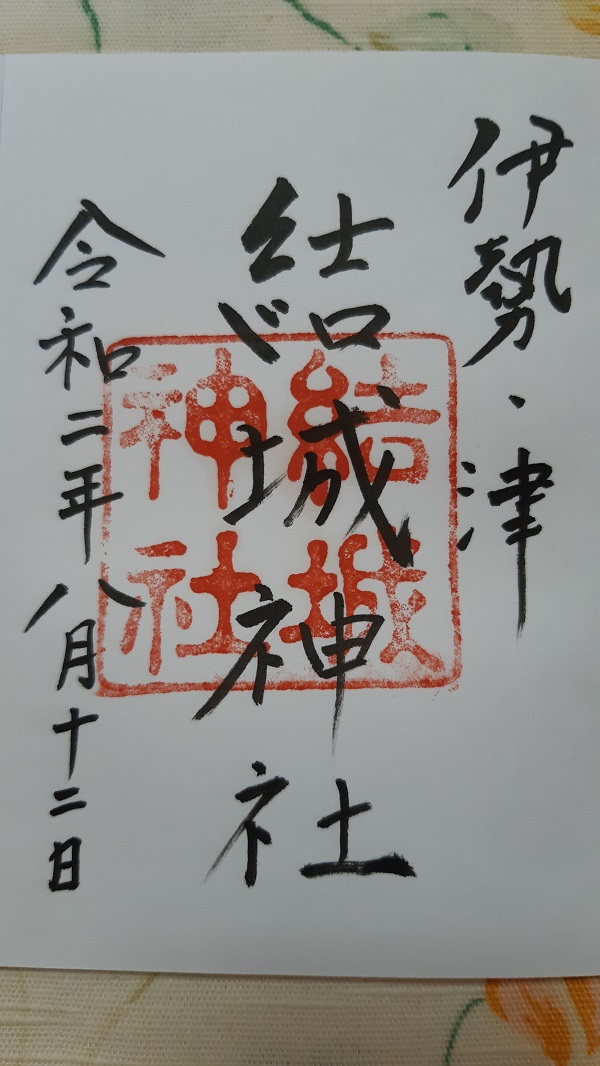 伊勢、津
結城神社
結城
神社
令和二年八月十二日